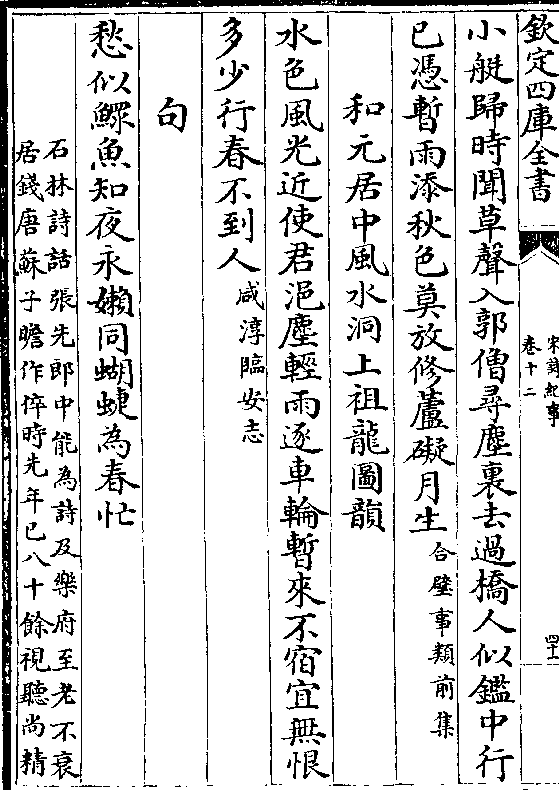 欽定四庫全書
宋詩紀事
卷十二
四十一
小艇歸時聞草聲入郭僧尋塵裏去過橋人似鑑中行
已憑暫雨添秋色莫放修蘆礙月生合璧事類前集
和元居中風水洞上祖龍圖韻
水色風光近使君浥塵輕雨逐車輪暫來不宿宜無恨
多少行春不到人咸淳臨安志
句
愁似鰥魚知夜永嬾同蝴蜨為春忙
石林詩話張先郎中能為詩及樂府至老不衰
居錢唐蘇子瞻作倅時先年已八十餘視聽尚精